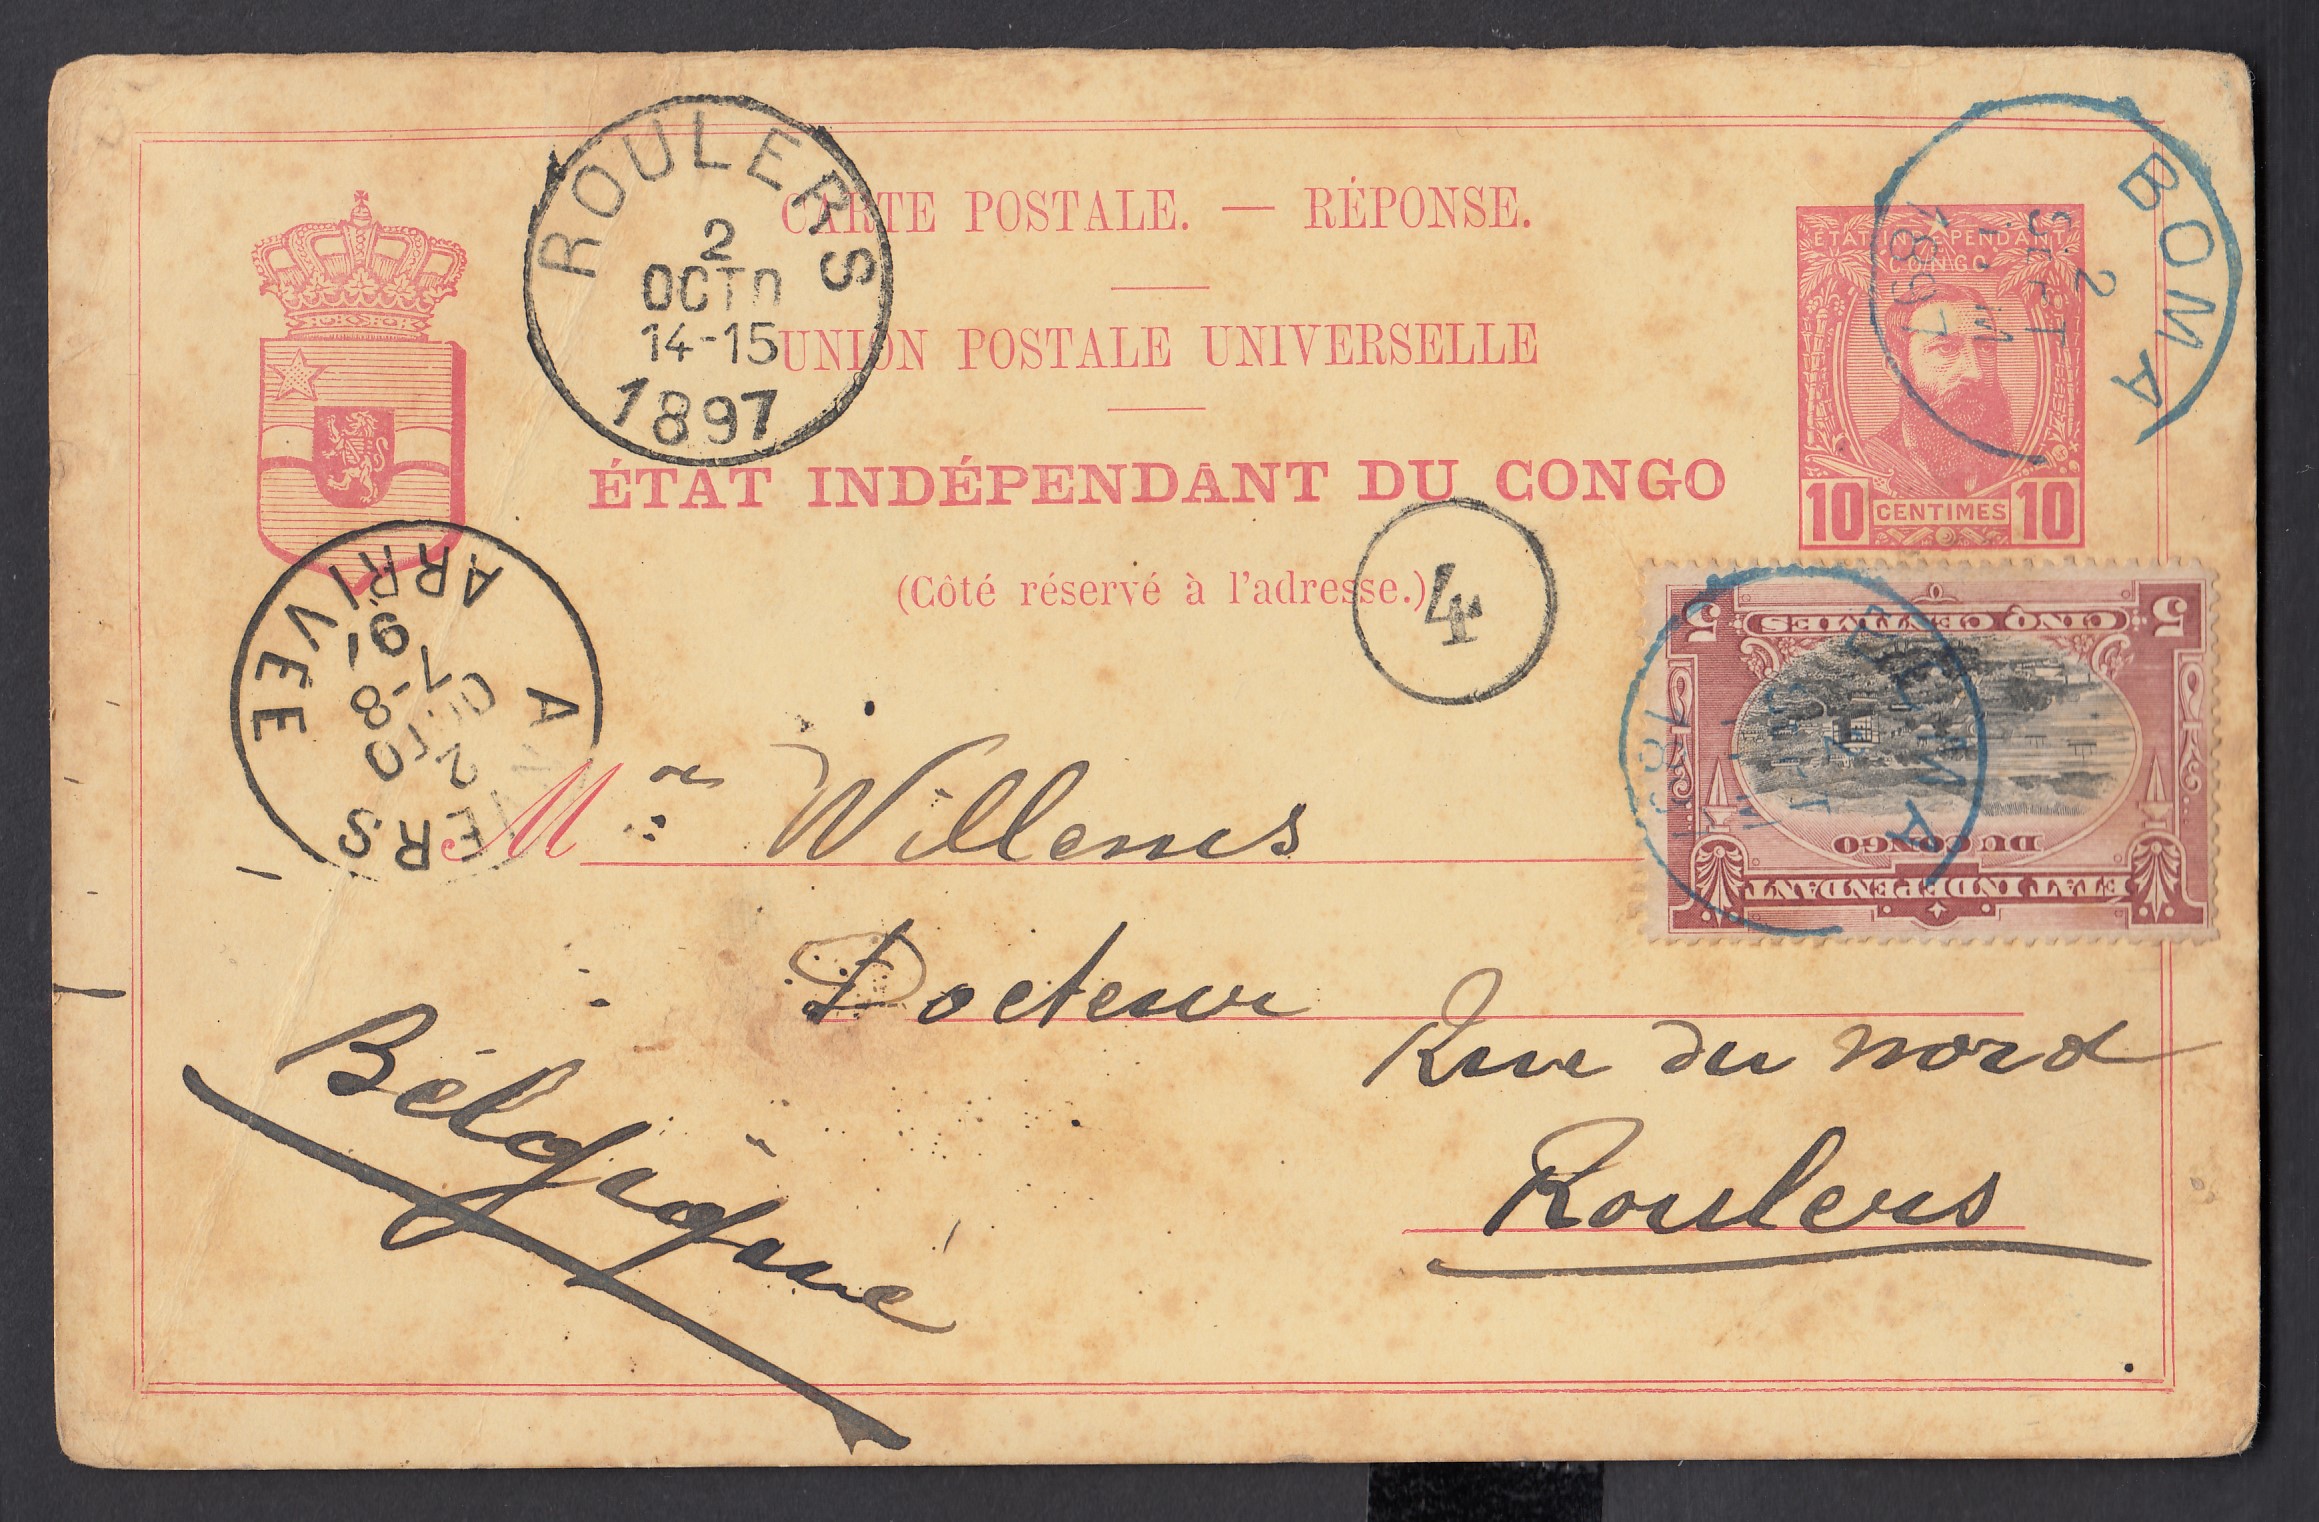 CARTE POSTALE. — RÉPONSE.
UNION POSTALE UNIVERSELLE
ÉTAT INDÉPENDANT DU CONGO
(Côté réservé à l'adresse.)
ROULERS
2
OCTO
14-15
1897
BOMA
2
SEPT
1897
ETAT INDEPENDANT
CONGO
10 CENTIMES 10
4
5 CINQ CENTIMES 5
DU CONGO
ETAT INDEPENDANT
ARRIVEE
2 OCTO
7-8
ANVERS
Mr Willems
Docteur
Rue du nord
Roulers
Belgique